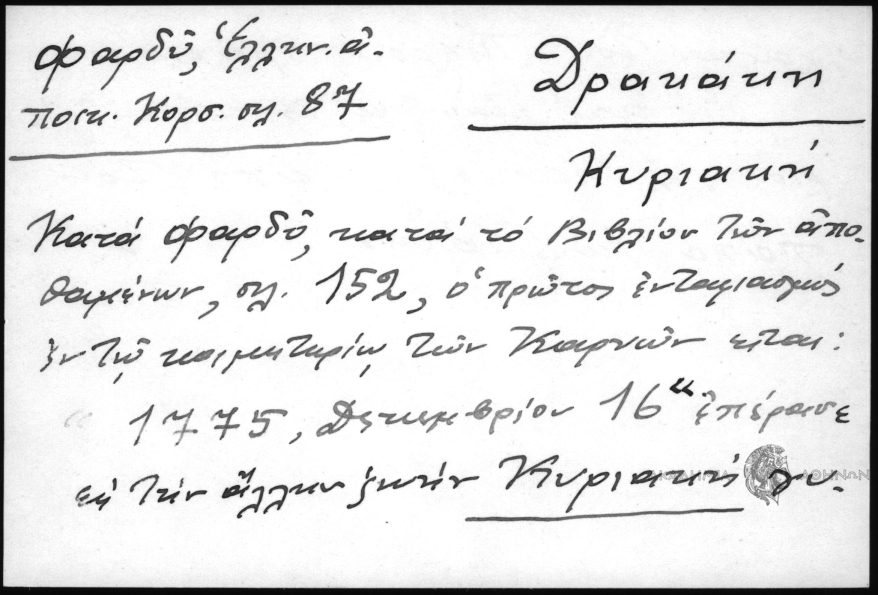 Φαρδῦ, Ἑλλην. ἀ-
ποικ. Κορσ. σλ. 87
Δρακάκη
Κυριακή
Κατά Φαρδῦ, κατά τό Βιβλίον τῶν ἀπο-
θαμένων, σλ. 152, ὁ πρῶτος ἐνταφιασμός
ἐν τῷ κοιμητηρίῳ τῶν Καρυῶν εἶται:
" 1775, Δεκεμβρίου 16 " ἐπέρασε
εἰς τήν ἄλλην ζωήν Κυριακή γυ-